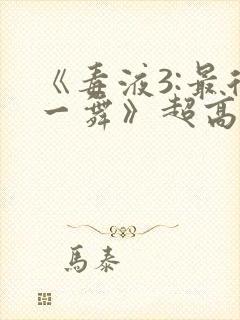 《毒液3:最后
一舞》超高
馬泰